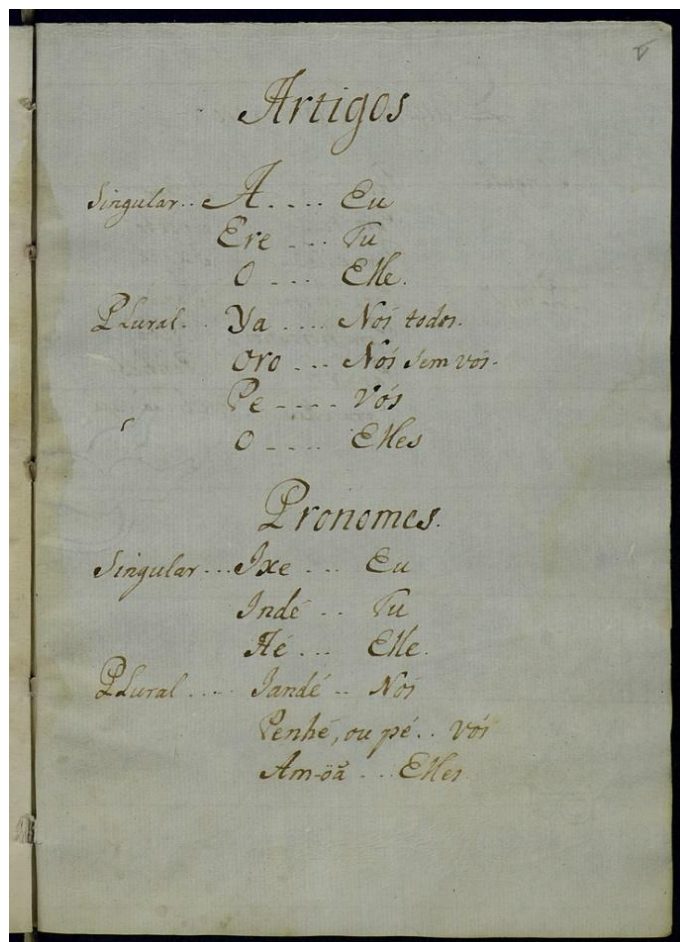 Artigos
Singular.. A.... Eu
Ere ... Tu
O .... Elle.
Plural.. Ya .... Nós todos.
Oro ... Nós sem vós.
Pe ---- Vós
O .... Elles
Pronomes.
Singular... Ixe ... Eu
Indé .. Tu
Aé ... Elle.
Plural .... Iandé .. Nós
Penhé, ou pé.. Vós
Am-öã ... Elles.